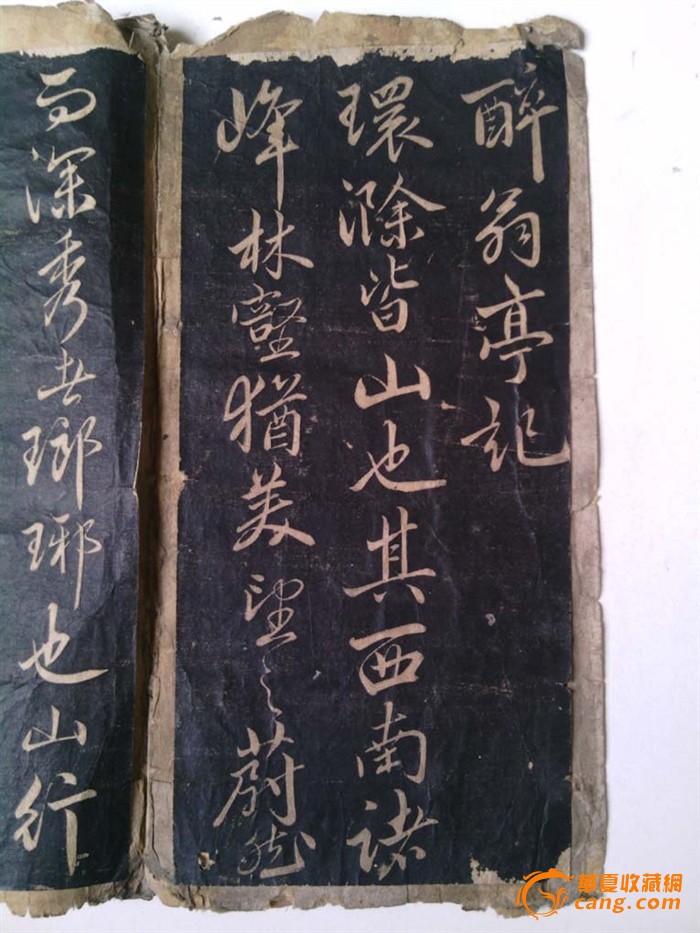 醉翁亭記
環滁皆山也其西南諸
峰林壑猶美望之蔚然
而深秀者瑯琊也山行
華夏收藏網
cang.com